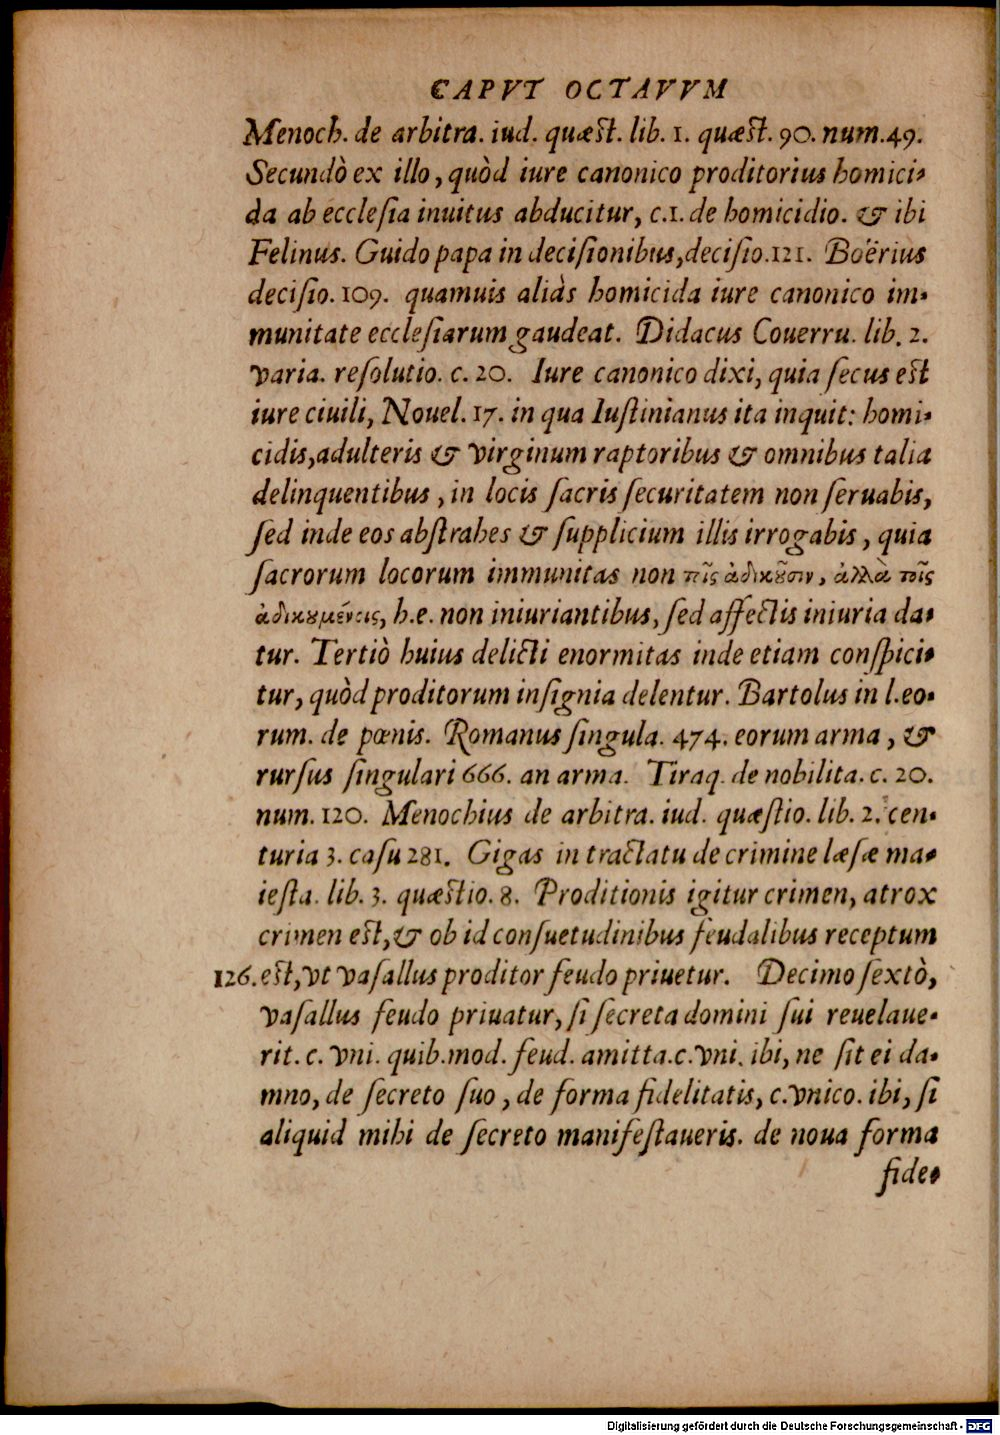 CAPVT OCTAVVM
Menoch. de arbitra. iud. quæst. lib. 1. quæst. 90. num.49.
Secundò ex illo, quòd iure canonico proditorius homici-
da ab ecclesia inuitus abducitur, c.1. de homicidio. & ibi
Felinus. Guido papa in decisionibus, decisio.121. Boërius
decisio. 109. quamuis aliàs homicida iure canonico im-
munitate ecclesiarum gaudeat. Didacus Couerru. lib. 2.
varia. resolutio. c. 20. Iure canonico dixi, quia secus est
iure ciuili, Nouel. 17. in qua Iustinianus ita inquit: homi-
cidis, adulteris & virginum raptoribus & omnibus talia
delinquentibus, in locis sacris securitatem non seruabis,
sed inde eos abstrahes & supplicium illis irrogabis, quia
sacrorum locorum immunitas non τοῖς ἀδικοῦσιν, ἀλλὰ τοῖς
ἀδικουμένοις, h.e. non iniuriantibus, sed affectis iniuria da-
tur. Tertiò huius delicti enormitas inde etiam conspici-
tur, quòd proditorum insignia delentur. Bartolus in l.eo-
rum. de pœnis. Romanus singula. 474. eorum arma, &
rursus singulari 666. an arma. Tiraq. de nobilita. c. 20.
num. 120. Menochius de arbitra. iud. quæstio. lib. 2. cen-
turia 3. casu 281. Gigas in tractatu de crimine læsæ ma-
iesta. lib. 3. quæstio. 8. Proditionis igitur crimen, atrox
crimen est, & ob id consuetudinibus feudalibus receptum
126. est, vt vasallus proditor feudo priuetur. Decimo sextò,
vasallus feudo priuatur, si secreta domini sui reuelaue-
rit. c. vni. quib.mod. feud. amitta.c.vni. ibi, ne sit ei da-
mno, de secreto suo, de forma fidelitatis, c.vnico. ibi, si
aliquid mihi de secreto manifestaueris. de noua forma
fide-
Digitalisierung gefördert durch die Deutsche Forschungsgemeinschaft - DFG